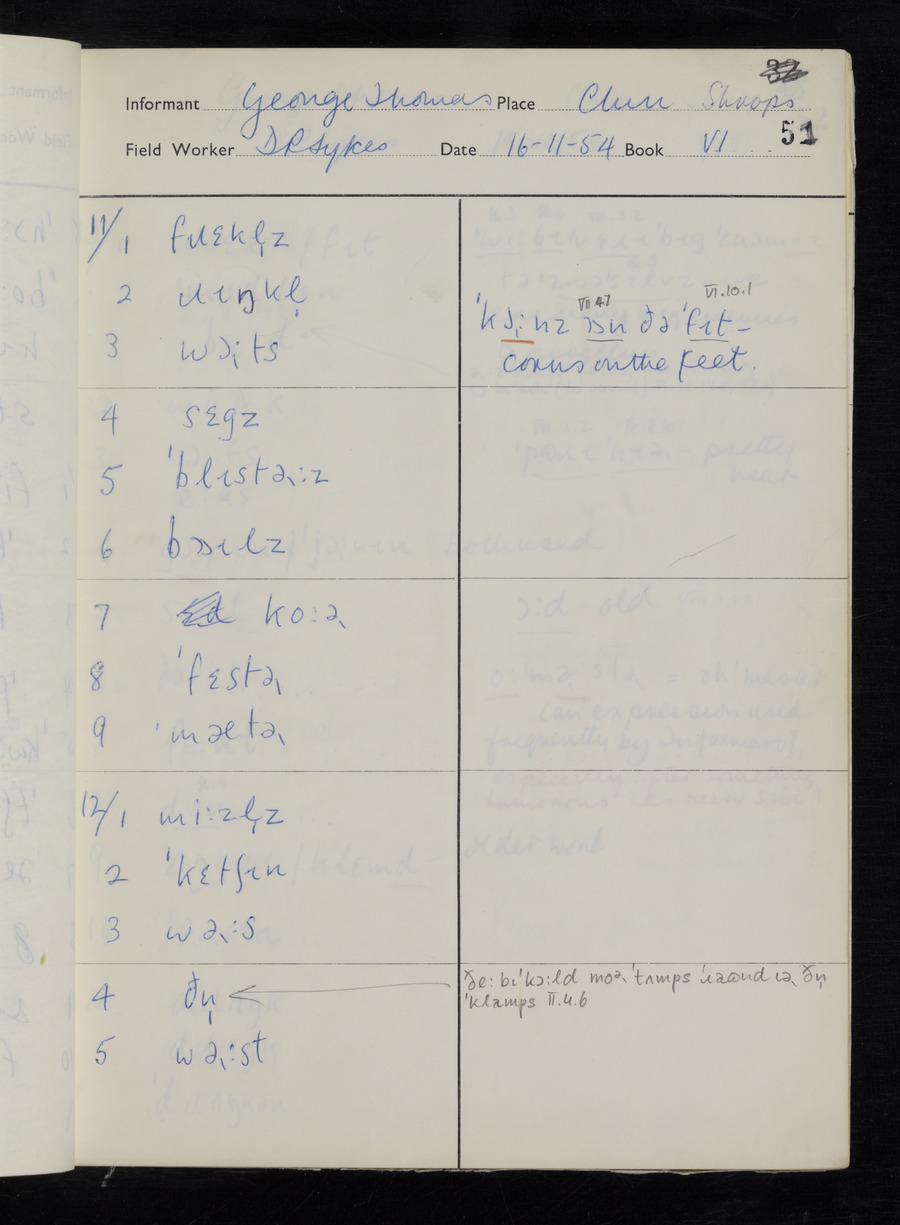 32
Informant George Thomas Place Clun Shrops
51
Field Worker D R Sykes Date 16-11-54 Book VI
11/1 fɹɛkl̩z
2 ɹɪŋkl̩
3 wɔ˞ːts
'kɔ˞ːnz ɔn ðə 'fɪt –
VII.4.7 VI.10.1
corns on the feet.
4 sɛgz
5 'blɪstə˞ːz
6 bɔɪlz
7 koːə˞
8 'fɛstə˞
9 'mætə˞
12/1 miːzl̩z
2 'kɛtʃɪn
3 wə˞ːs
4 ðn̩
ðeː bɪ'kɔːld moə˞ 'tʌmps 'ɹaʊnd ɪə˞ ðn̩
'klamps II.4.6
5 wə˞ːst